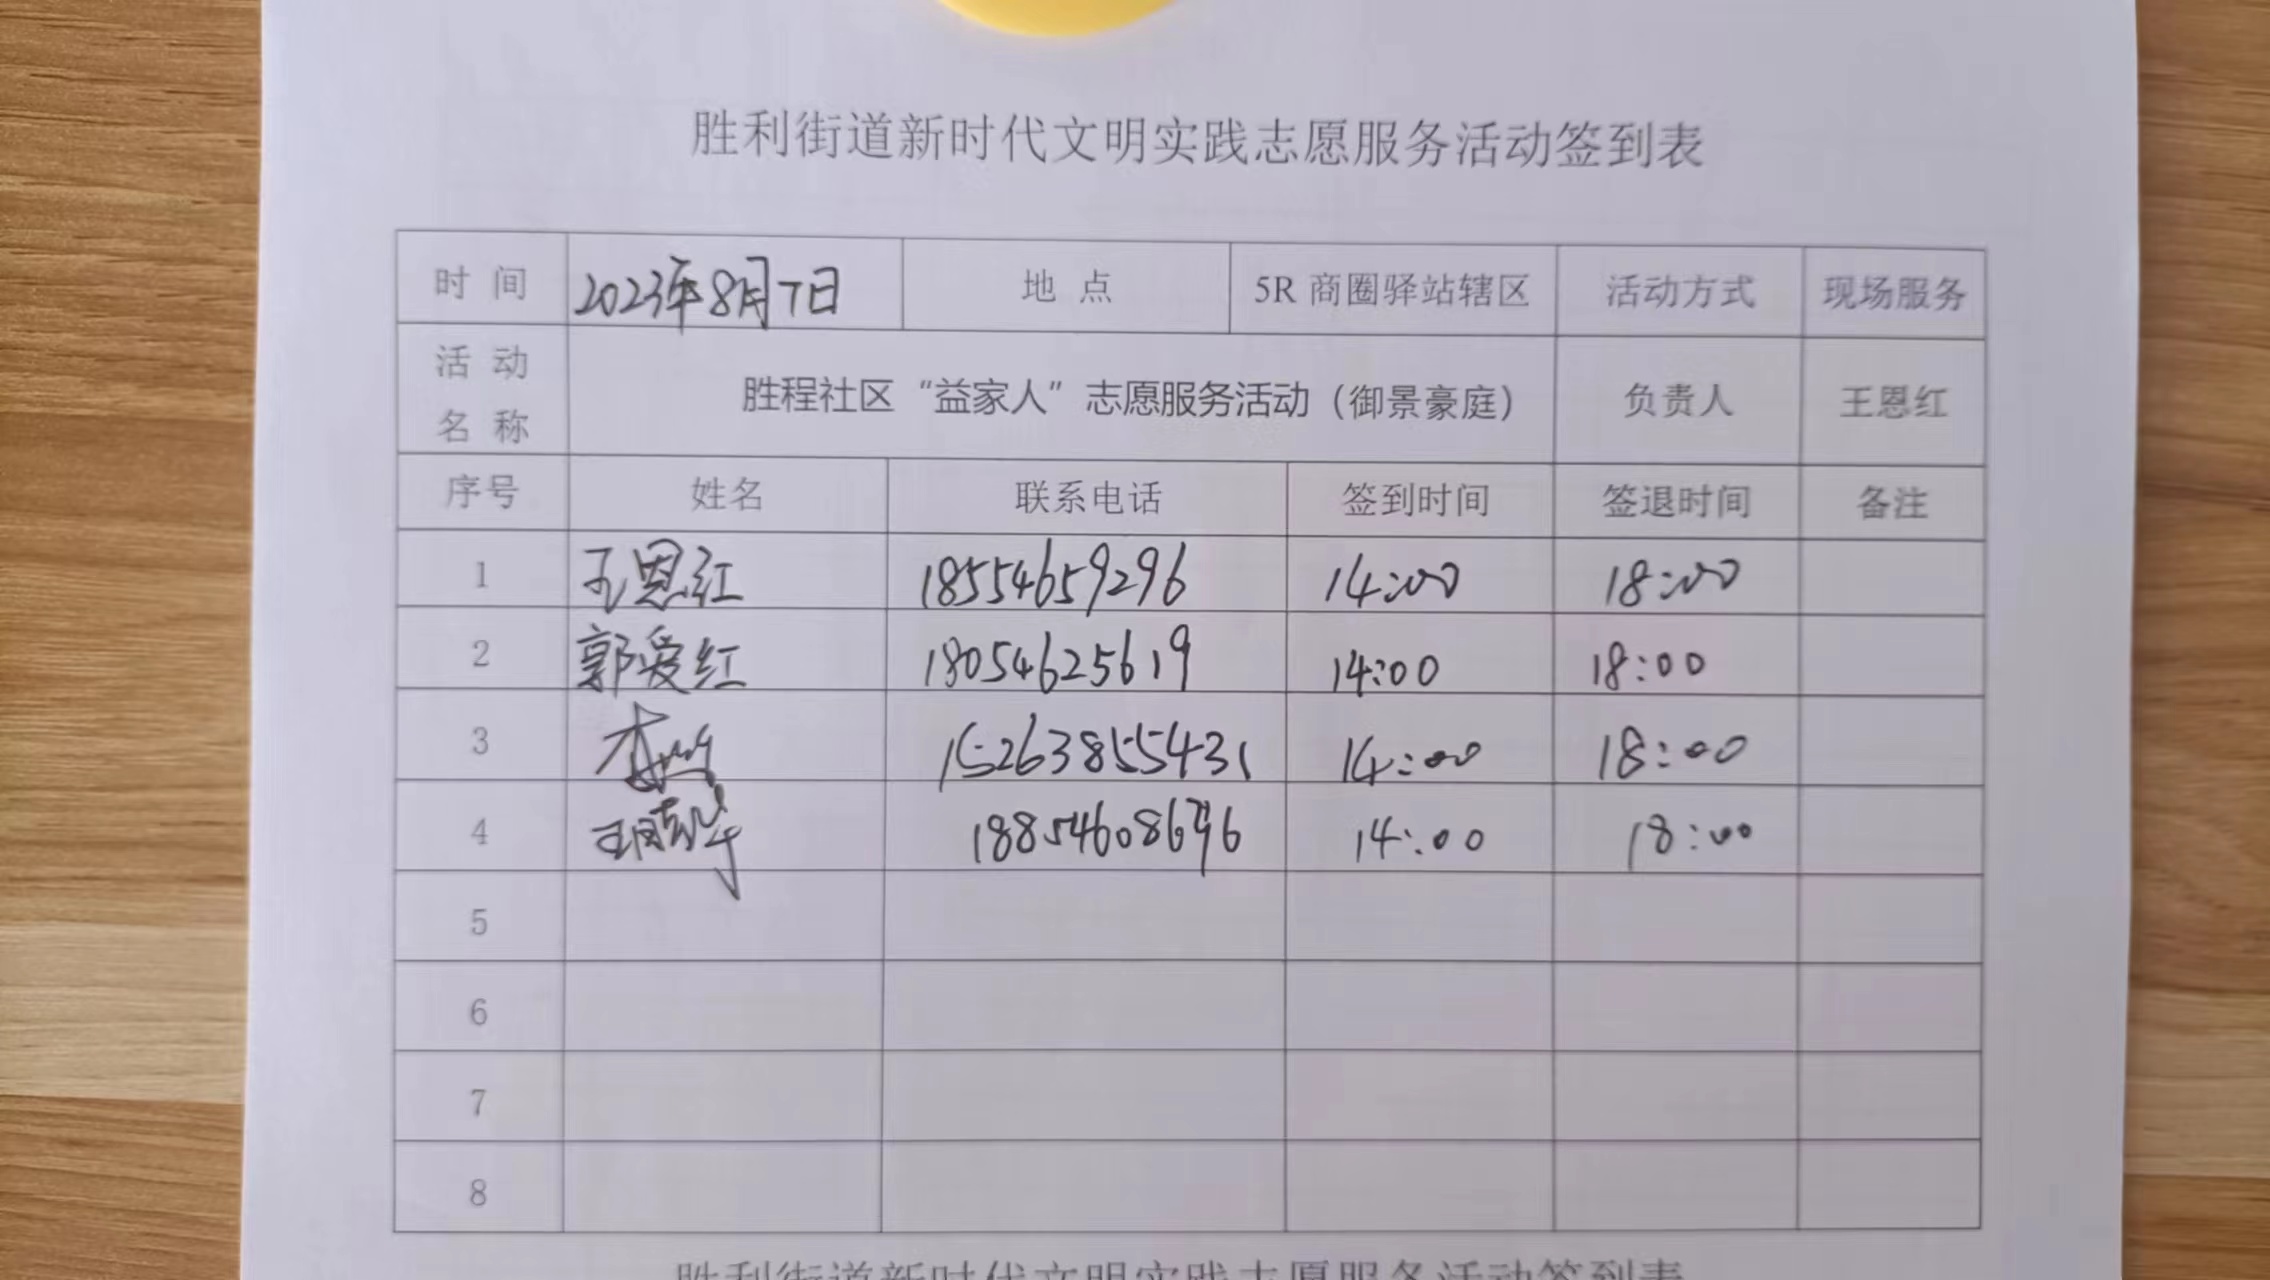 胜利街道新时代文明实践志愿服务活动签到表
时 间 2023年8月7日 地 点 5R 商圈驿站辖区 活动方式 现场服务
活 动 名 称 胜程社区“益家人”志愿服务活动（御景豪庭） 负责人 王恩红
序号 姓名 联系电话 签到时间 签退时间 备注
1 王恩红 18554659296 14:00 18:00
2 郭爱红 18054625619 14:00 18:00
3 15263855431 14:00 18:00
4 14:00 18:00
5
6
7
8
胜利街道新时代文明实践志愿服务活动签到表